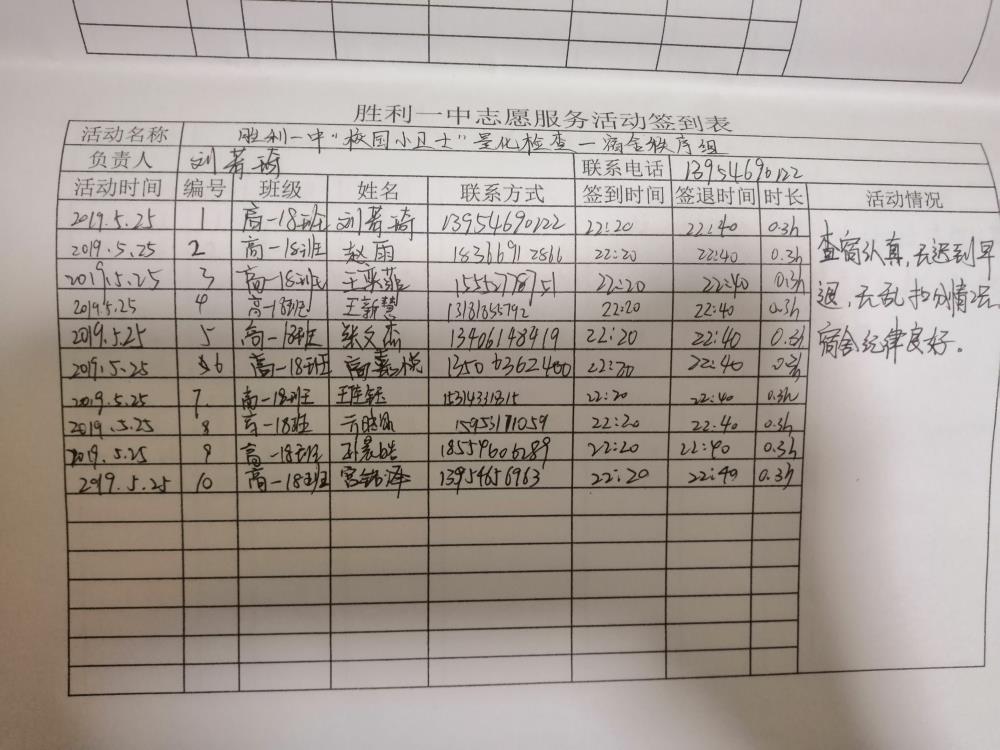 胜利一中志愿服务活动签到表
活动名称 胜利一中"校园小卫士"量化检查一宿舍秩序组
负责人 刘若琦 联系电话 13954690122
活动时间 编号 班级 姓名 联系方式 签到时间 签退时间 时长 活动情况
2019.5.25 1 高一18班 刘若琦 13954690122 22:20 22:40 0.3h
2019.5.25 2 高一18班 赵雨 18366912866 22:20 22:40 0.3h
2019.5.25 3 高一18班 王奕菲 15552778751 22:20 22:40 0.3h
2019.5.25 4 高一18班 王新慧 13181855792 22:20 22:40 0.3h
2019.5.25 5 高一18班 张文杰 13406148419 22:20 22:40 0.3h
2019.5.25 6 高一18班 高嘉悦 22:20 22:40 0.3h
2019.5.25 7 高一18班 22:20 22:40 0.3h
2019.5.25 8 高一18班 15953171059 22:20 22:40 0.3h
2019.5.25 9 高一18班 18559606289 22:20 22:40 0.3h
2019.5.25 10 高一18班 宫锦泽 13954656963 22:20 22:40 0.3h
查宿认真,无迟到早
退,无乱扣分情况
宿舍纪律良好。